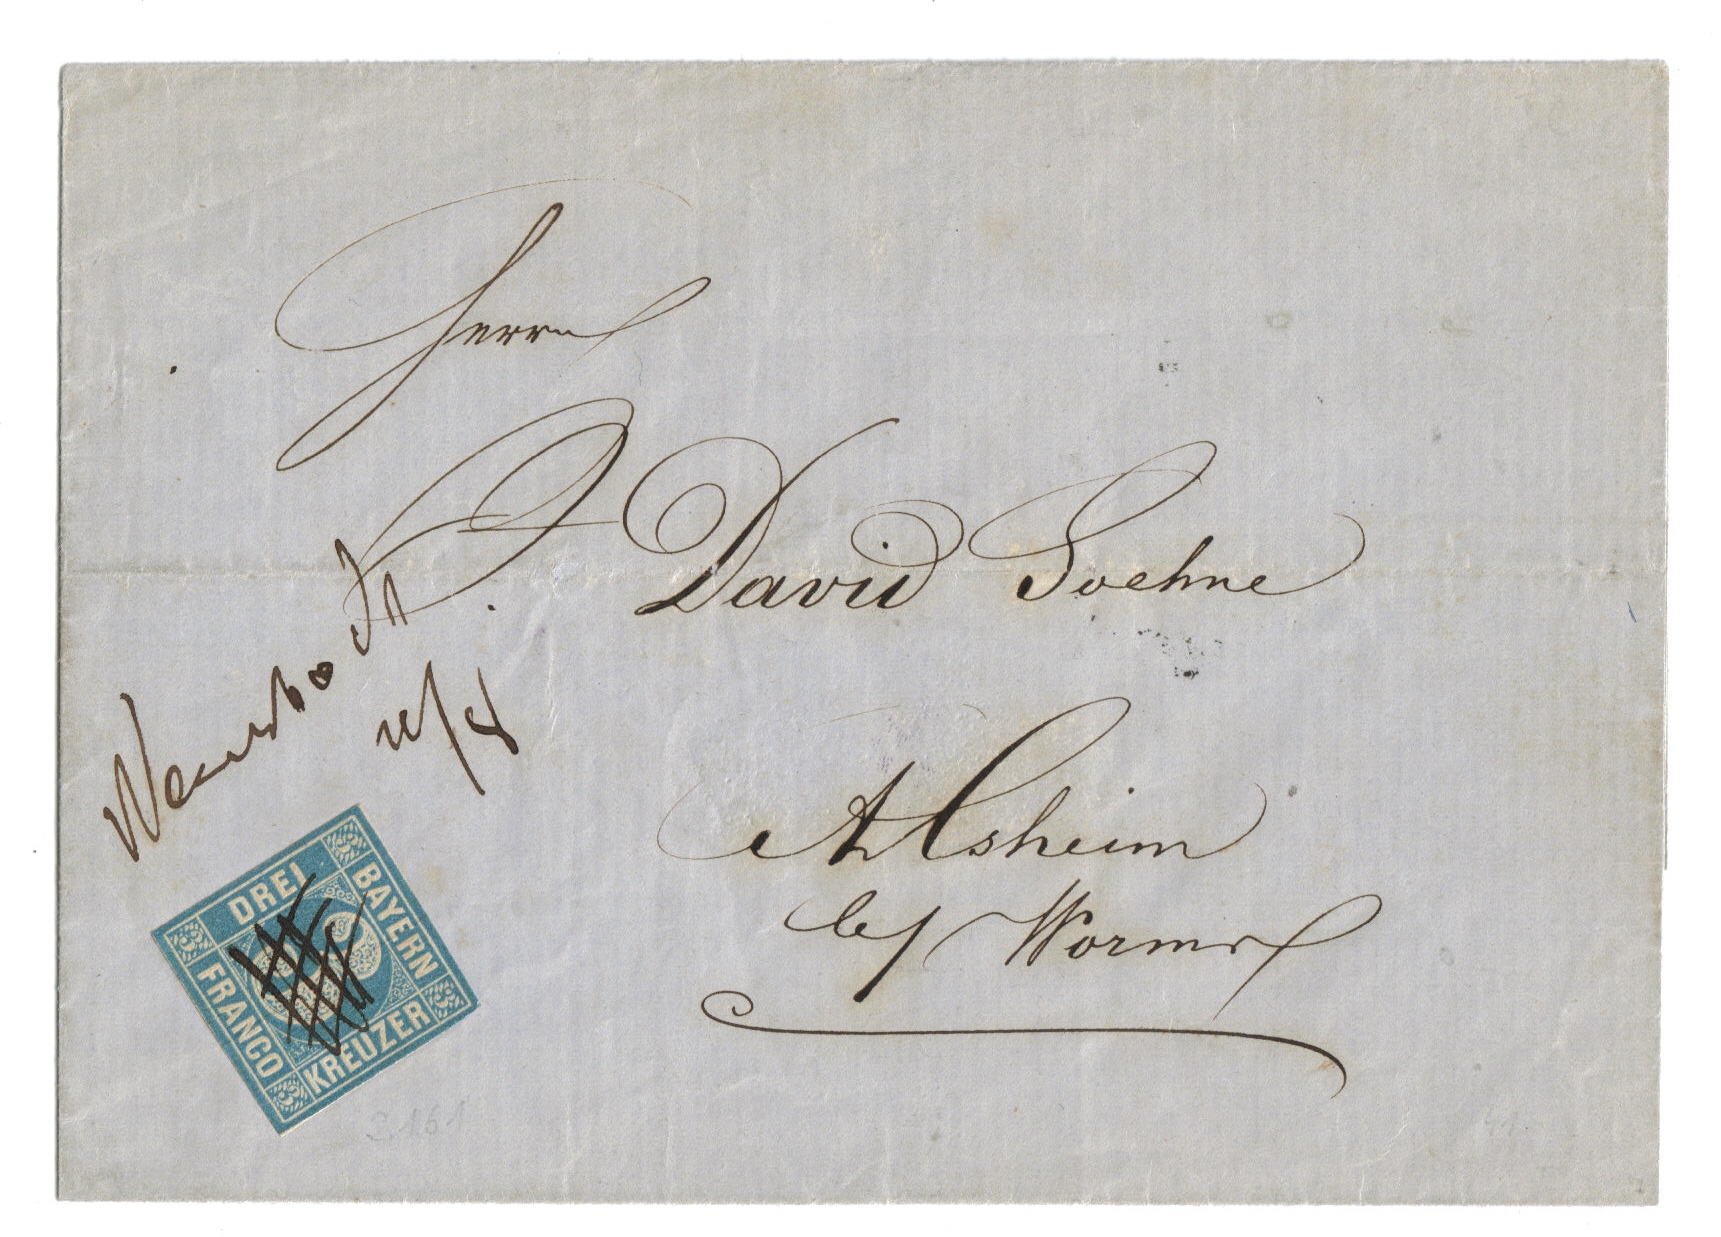 Herrn
David Soehne
Alsheim
by Worms
DREI
BAYERN
FRANCO
KREUZER
3
3
3
3
2161